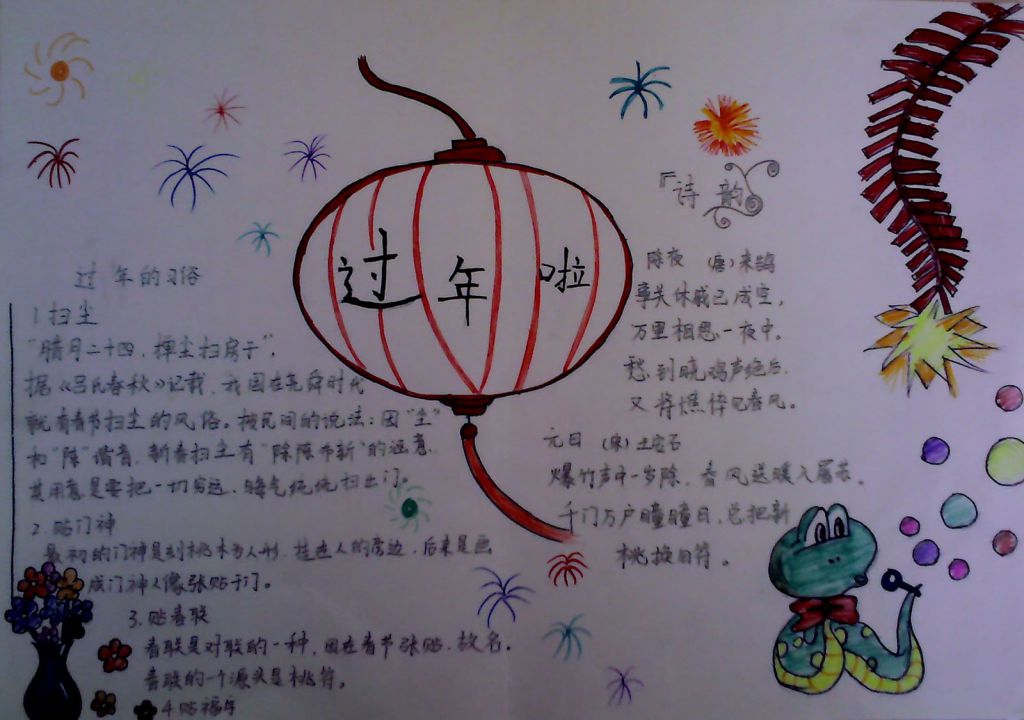 过年啦
过年的习俗
1 扫尘
"腊月二十四，掸尘扫房子"，
据《吕氏春秋》记载，我国在尧舜时代
就有春节扫尘的风俗。按民间的说法：因"尘"
和"陈"谐音，新春扫尘有"除陈布新"的涵意，
其用意是要把一切穷运、晦气统统扫出门。
2. 贴门神
最初的门神是刻桃木为人形，挂在人的旁边，后来是画
成门神人像张贴于门。
3. 贴春联
春联是对联的一种，因在春节张贴，故名。
春联的一个源头是桃符。
4 贴福字
『诗韵
除夜 （唐）来鹄
事关休戚已成空，
万里相思一夜中。
愁到晓鸡声绝后，
又将憔悴见春风。
元日 （宋）王安石
爆竹声中一岁除，春风送暖入屠苏。
千门万户曈曈日，总把新
桃换旧符。